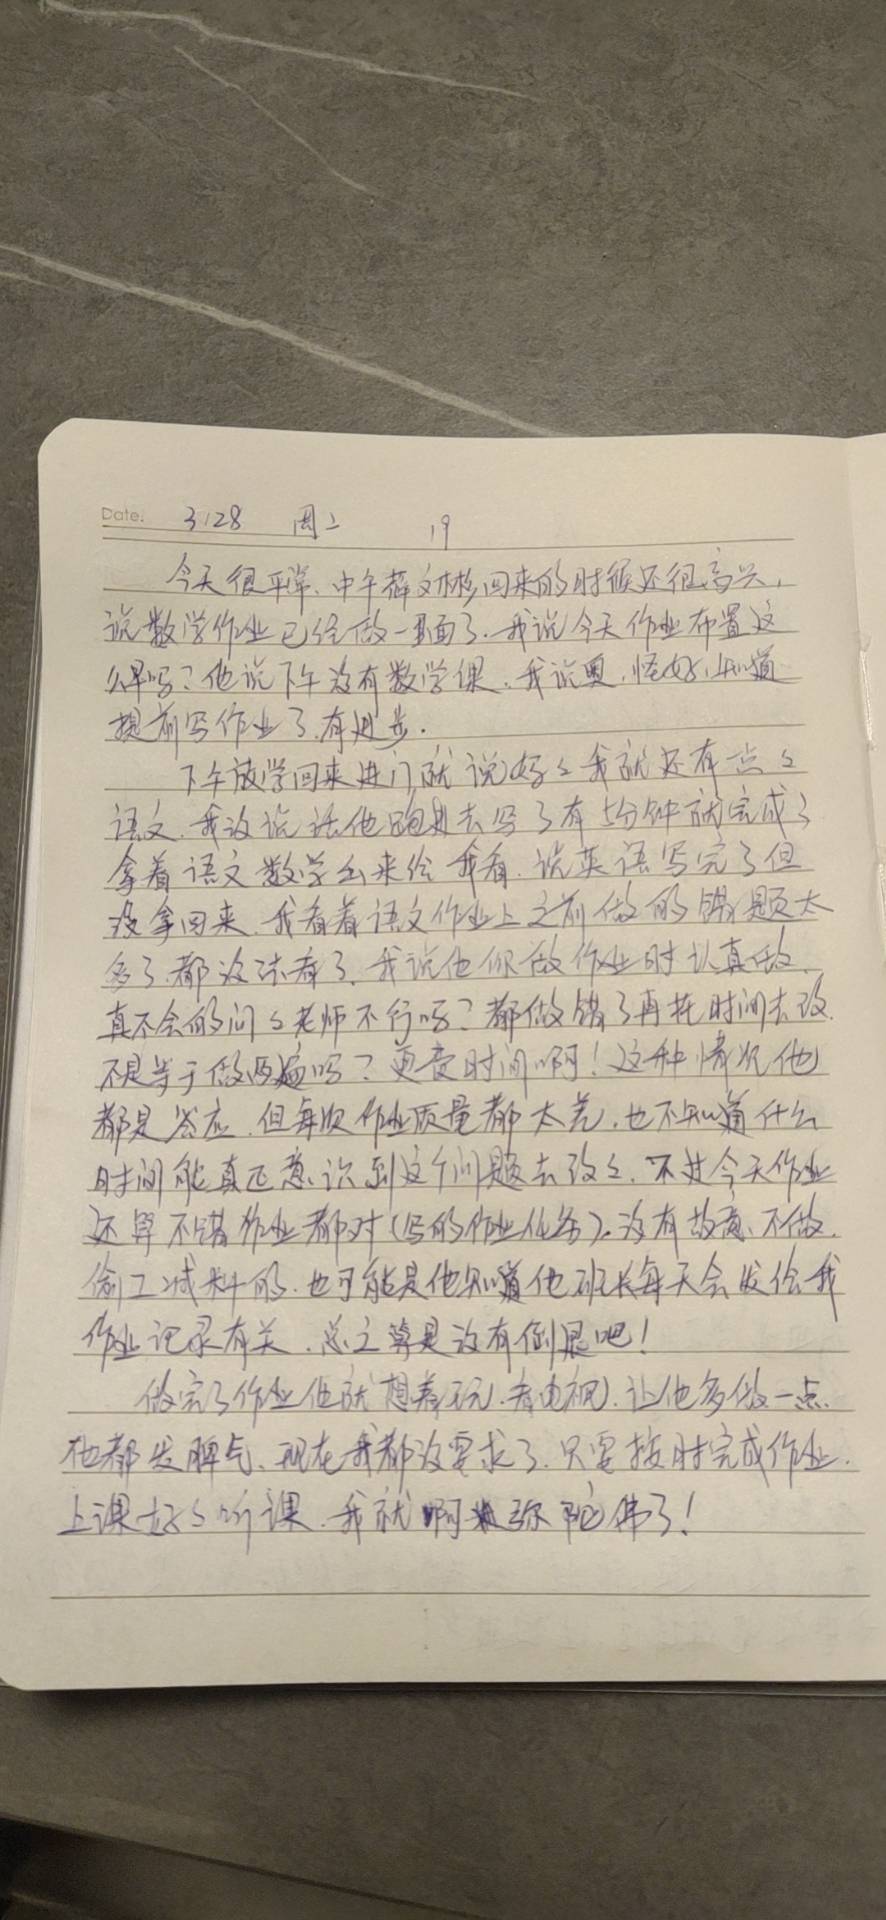 Date: 3/28 周二 19
今天很平常、中午薛文彬回来的时候还很高兴，
说数学作业已经做一面了．我说今天作业布置这
么早吗？他说下午没有数学课．我说奥，怪好，知道
提前写作业了．有进步．
下午放学回来进门就说妈く我就还有一点く
语文．我没说话他跑进去写了有5分钟就完成了
拿着语文数学出来给我看．说英语写完了但
没拿回来．我看着语文作业上之前做的错题太
多了．都没法看了．我说他你做作业时认真做．
真不会的问く老师不行吗？都做错了再耗时间去改．
不是等于做两遍吗？更费时间啊！这种情况他
都是答应．但每次作业质量都太差．也不知道什么
时间能真正意识到这个问题去改く．不过今天作业
还算不错作业都对（写的作业任务）．没有故意不做．
偷工减料的．也可能是他知道他班长每天会发给我
作业记录有关．总之算是没有倒退吧！
做完了作业他就想着玩．看电视）．让他多做一点
他都发脾气、现在我都没要求了．只要按时完成作业．
上课好く听课．我就啊弥陀佛了！